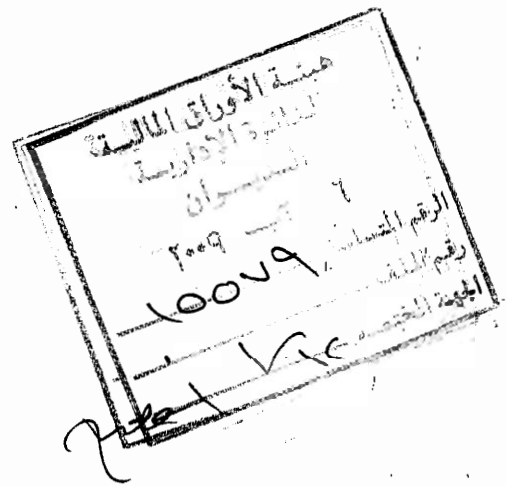 هيئة الأوراق المالية
الدائرة الإدارية
الديوان
٦ آب ٢٠٠٩
الرقم المتسلسل ١٥٥٧٩
رقم الملف
الجهة المختصة